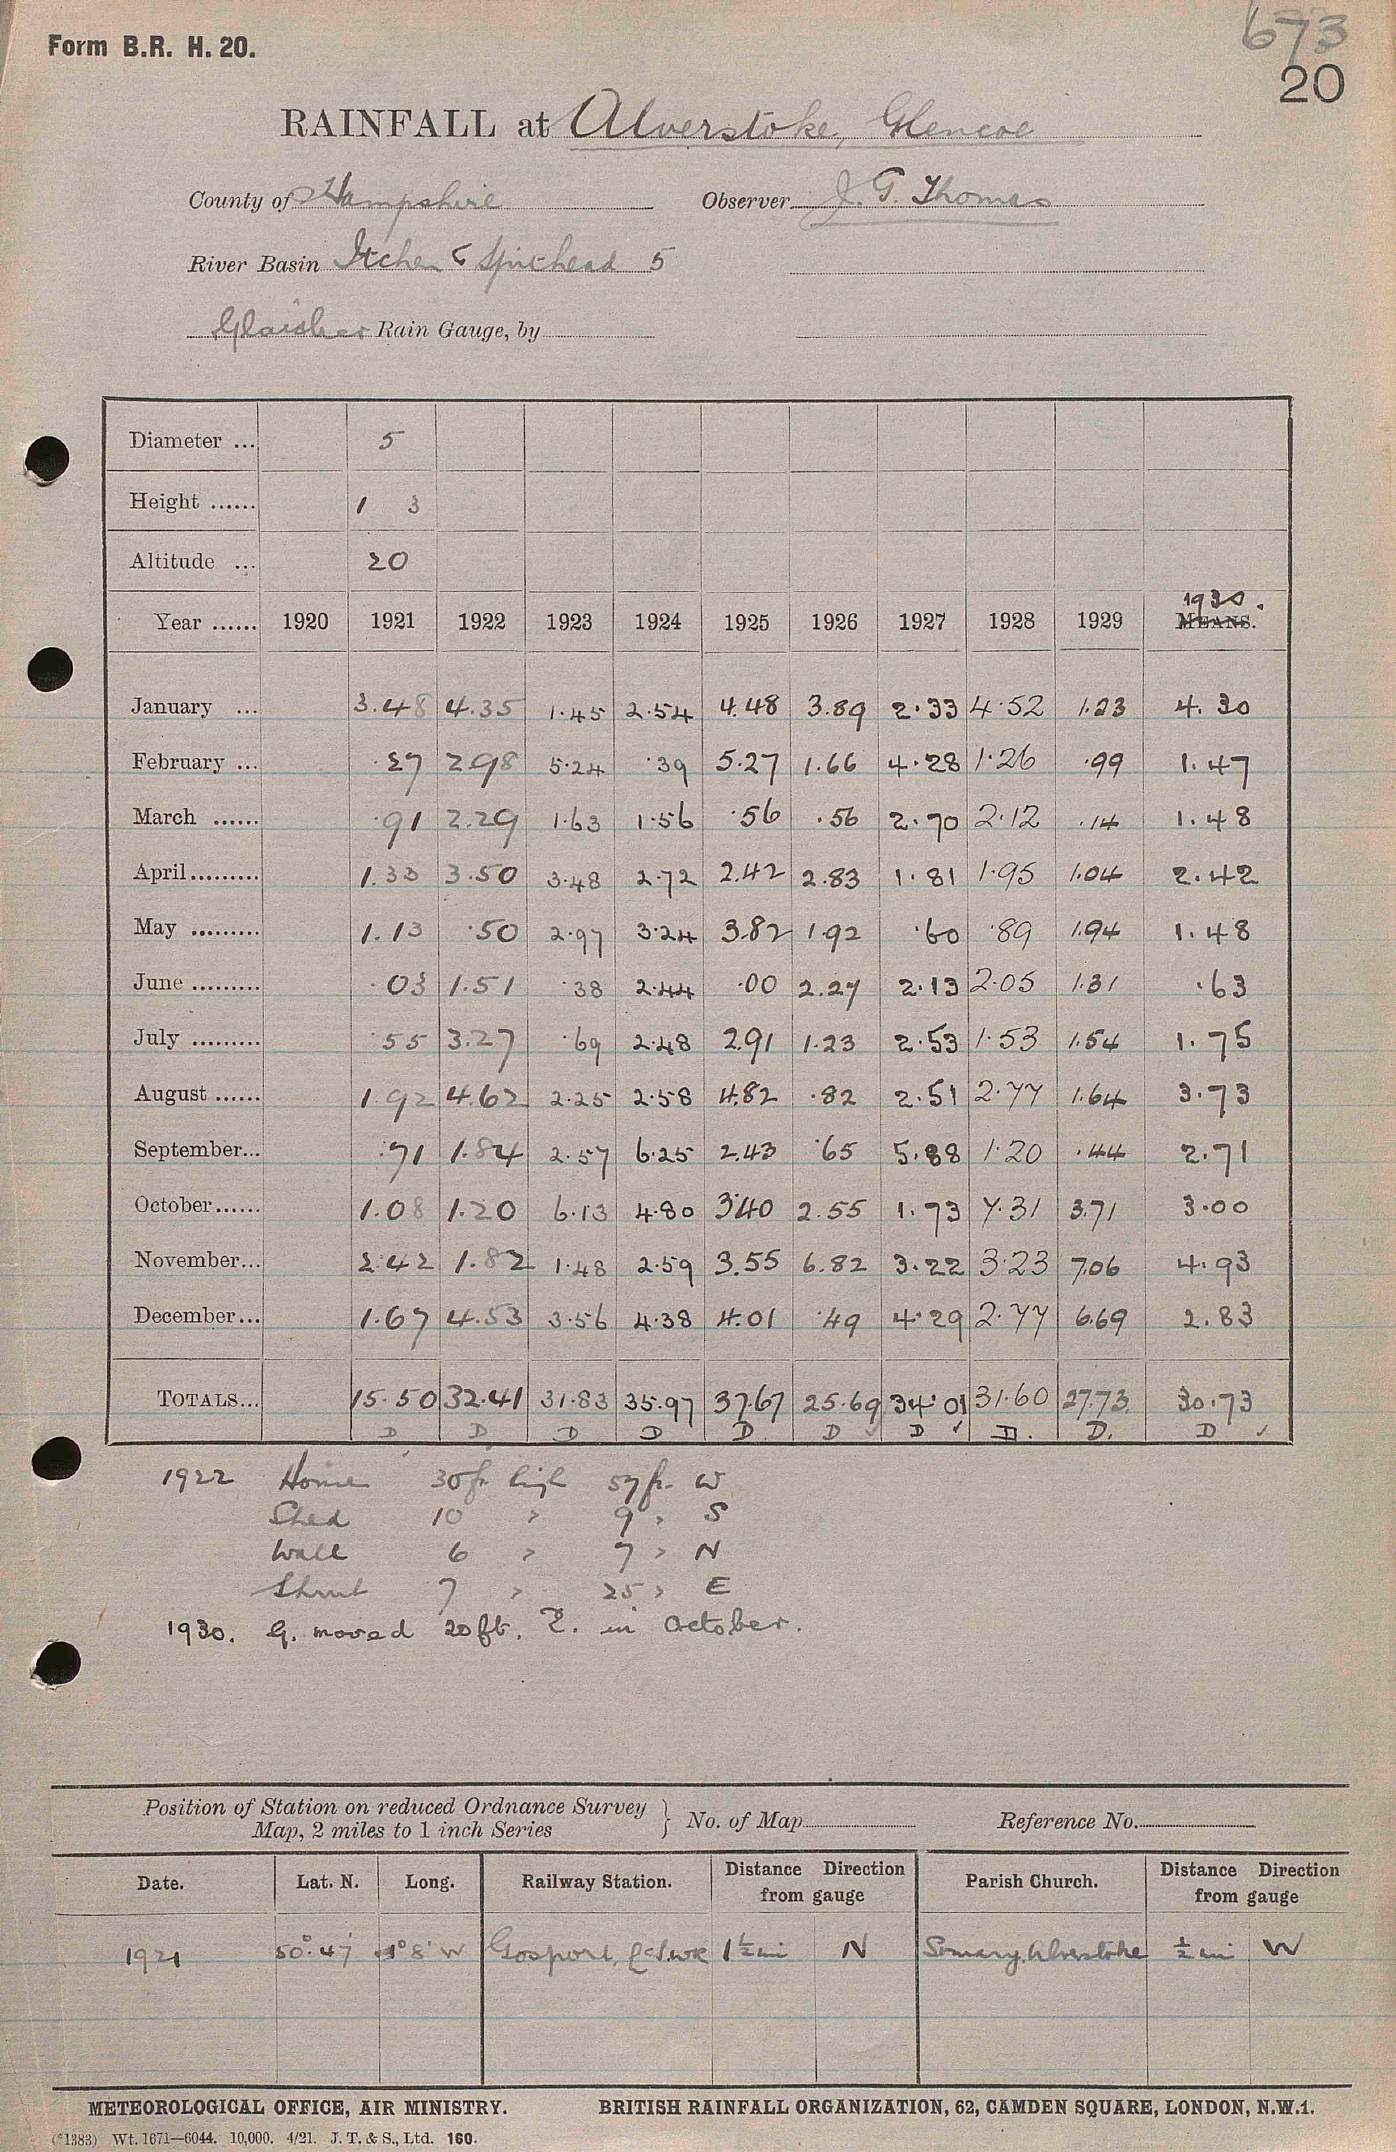 Form B.R. H. 20.
673
20
RAINFALL at Alverstoke, Glencoe
County of Hampshire Observer J. G. Thomas
River Basin Itchen & Spithead 5
Glaisher Rain Gauge, by
Diameter ... 5
Height ...... 1 3
Altitude ... 20
Year ...... 1920 1921 1922 1923 1924 1925 1926 1927 1928 1929 1930. MEANS.
January ... 3.48 4.35 1.45 2.54 4.48 3.89 2.33 4.52 1.23 4.30
February ... .27 2.98 5.24 .39 5.27 1.66 4.28 1.26 .99 1.47
March ...... .91 2.29 1.63 1.56 .56 .56 2.70 2.12 .14 1.48
April......... 1.33 3.50 3.48 2.72 2.42 2.83 1.81 1.95 1.04 2.42
May ......... 1.13 .50 2.97 3.24 3.82 1.92 .60 .89 1.94 1.48
June ......... .03 1.51 .38 2.44 .00 2.27 2.13 2.05 1.31 .63
July ......... .55 3.27 .69 2.48 2.91 1.23 2.53 1.53 1.54 1.75
August ...... 1.92 4.62 2.25 2.58 4.82 .82 2.51 2.77 1.64 3.73
September... .71 1.84 2.57 6.25 2.43 .65 5.88 1.20 .44 2.71
October...... 1.08 1.20 6.13 4.80 3.40 2.55 1.73 7.31 3.71 3.00
November... 2.42 1.82 1.48 2.59 3.55 6.82 3.22 3.23 7.06 4.93
December... 1.67 4.53 3.56 4.38 4.01 .49 4.29 2.77 6.69 2.83
TOTALS... 15.50 32.41 31.83 35.97 37.67 25.69 34.01 31.60 27.73 30.73
D D D D D D ✓ D ✓ D. D. D ✓
1922 House 30 ft. high 57 ft. W
Shed 10 " 9 " S
Wall 6 " 7 " N
Shrub 7 " 25 " E
1930. G. moved 20 ft. E. in October.
Position of Station on reduced Ordnance Survey
Map, 2 miles to 1 inch Series } No. of Map Reference No.
Date. Lat. N. Long. Railway Station. Distance Direction from gauge Parish Church. Distance Direction from gauge
1921 50° 47' 1° 8' W Gosport, 1½ mi N St Mary, Alverstoke ½ mi W
METEOROLOGICAL OFFICE, AIR MINISTRY. BRITISH RAINFALL ORGANIZATION, 62, CAMDEN SQUARE, LONDON, N.W.1.
(*1383) Wt. 1671—6044. 10,000. 4/21. J. T. & S., Ltd. 160.